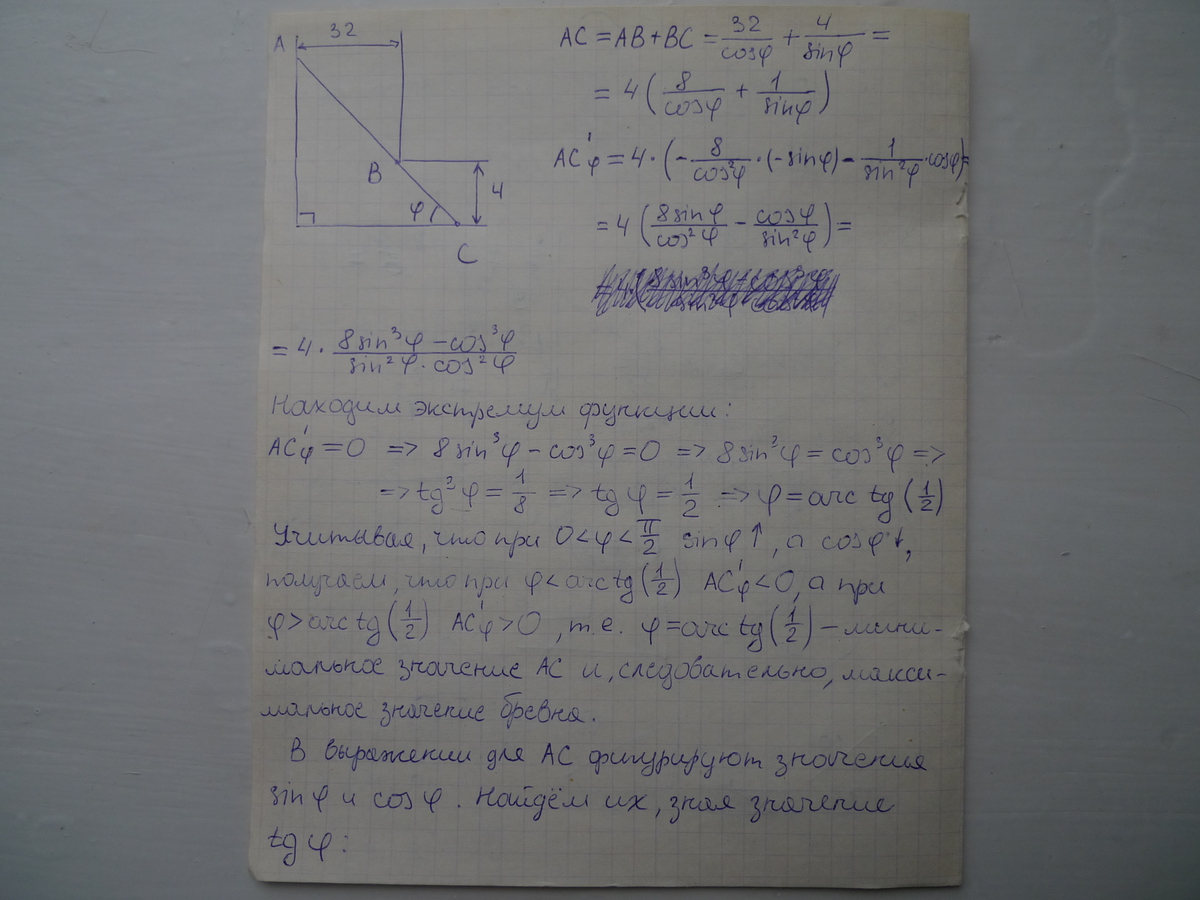 A 32
B
φ 4
C
AC = AB + BC = 32/cosφ + 4/sinφ =
= 4 ( 8/cosφ + 1/sinφ )
AC'φ = 4 · ( - 8/cos²φ · (-sinφ) - 1/sin²φ · cosφ ) =
= 4 ( 8sinφ/cos²φ - cosφ/sin²φ ) =
= 4 · (8sin³φ - cos³φ)/(sin²φ · cos²φ)
Находим экстремум функции:
AC'φ = 0 => 8sin³φ - cos³φ = 0 => 8sin³φ = cos³φ =>
=> tg³φ = 1/8 => tgφ = 1/2 => φ = arctg(1/2)
Учитывая, что при 0<φ<π/2 sinφ↑, а cosφ↓,
получаем, что при φ<arctg(1/2) AC'φ<0, а при
φ>arctg(1/2) AC'φ>0, т.е. φ=arctg(1/2) – мини-
мальное значение AC и, следовательно, макси-
мальное значение бревна.
В выражении для AC фигурируют значения
sinφ и cosφ. Найдём их, зная значение
tgφ: